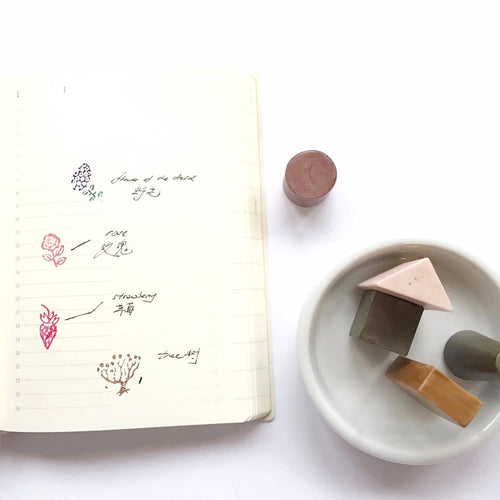 flower of the field
野花
rose
玫瑰
strawberry
草莓
tree 树